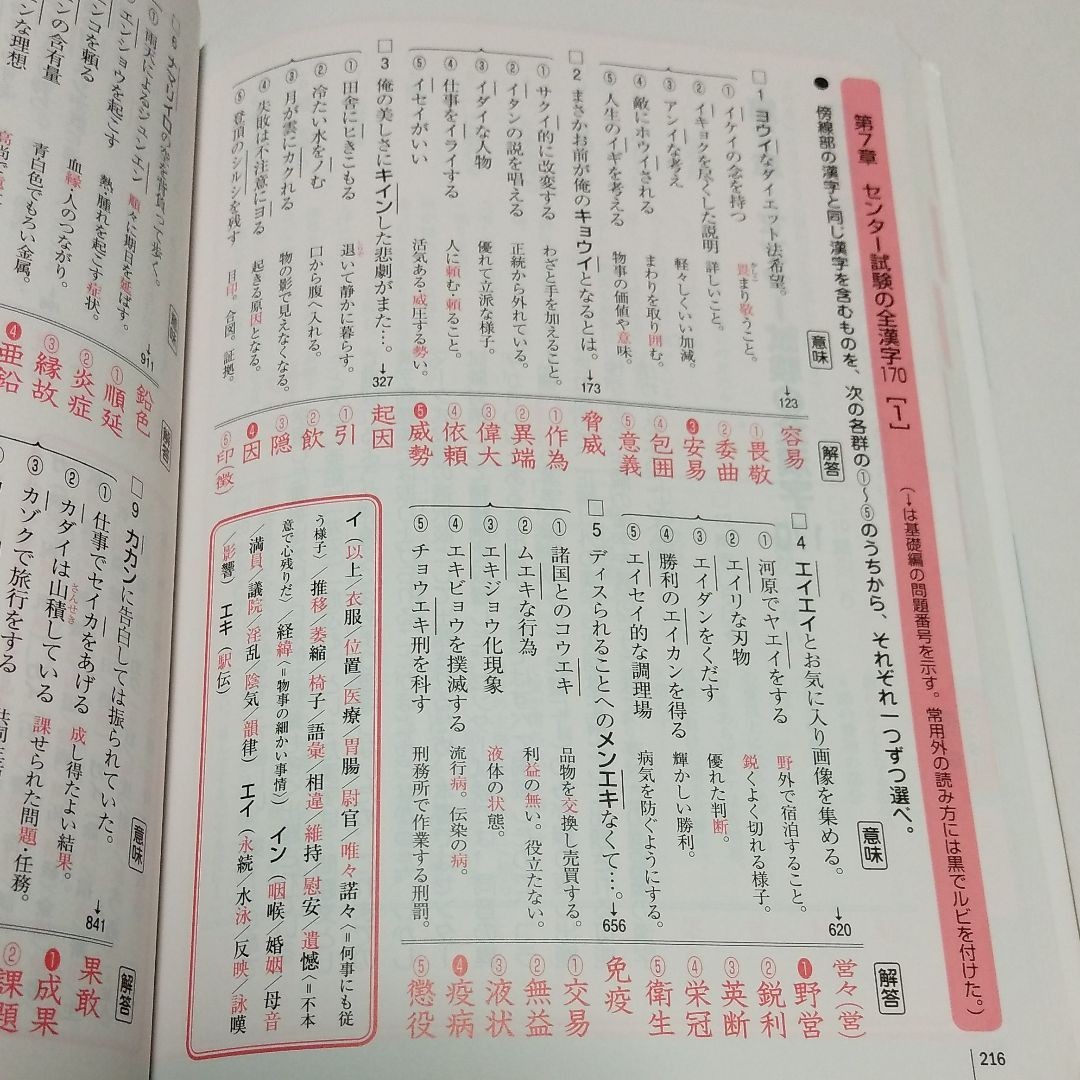 第7章 センター試験の全漢字170［1］
（→は基礎編の問題番号を示す。常用外の読み方には黒でルビを付けた。）
● 傍線部の漢字と同じ漢字を含むものを、次の各群の①〜⑤のうちから、それぞれ一つずつ選べ。
意味
解答
□1 ヨウイなダイエット法希望。 →123 容易
① イケイの念を持つ 畏まり敬うこと。 ①畏敬
② イキョクを尽くした説明 詳しいこと。 ②委曲
③ アンイな考え 軽々しくいい加減。 ❸安易
④ 敵にホウイされる まわりを取り囲む。 ④包囲
⑤ 人生のイギを考える 物事の価値や意味。 ⑤意義
□2 まさかお前が俺のキョウイとなるとは。 →173 脅威
① サクイ的に改変する わざと手を加えること。 ①作為
② イタンの説を唱える 正統から外れている。 ②異端
③ イダイな人物 優れて立派な様子。 ③偉大
④ 仕事をイライする 人に頼む・頼ること。 ④依頼
⑤ イセイがいい 活気ある・威圧する勢い。 ❺威勢
□3 俺の美しさにキインした悲劇がまた…。 →327 起因
① 田舎にヒきこもる 退いて静かに暮らす。 ①引
② 冷たい水をノむ 口から腹へ入れる。 ②飲
③ 月が雲にカクれる 物の影で見えなくなる。 ③隠
④ 失敗は不注意にヨる 起きる原因となる。 ❹因
⑤ 登頂のシルシを残す 目印。合図。証拠。 ⑤印（徴）
意味
解答
□4 エイエイとお気に入り画像を集める。 →620 営々（営）
① 河原でヤエイをする 野外で宿泊すること。 ❶野営
② エイリな刃物 鋭くよく切れる様子。 ②鋭利
③ エイダンをくだす 優れた判断。 ③英断
④ 勝利のエイカンを得る 輝かしい勝利。 ④栄冠
⑤ エイセイ的な調理場 病気を防ぐようにする。 ⑤衛生
□5 ディスられることへのメンエキなくて…。 →656 免疫
① 諸国とのコウエキ 品物を交換し売買する。 ①交易
② ムエキな行為 利益の無い。役立たない。 ②無益
③ エキジョウ化現象 液体の状態。 ③液状
④ エキビョウを撲滅する 流行病。伝染の病。 ❹疫病
⑤ チョウエキ刑を科す 刑務所で作業する刑罰。 ⑤懲役
イ（以上／衣服／位置／医療／胃腸／尉官／唯々諾々〈＝何事にも従
う様子〉／推移／萎縮／椅子／語彙／相違／維持／慰安／遺憾〈＝不本
意で心残りだ〉／経緯〈＝物事の細かい事情〉 イン（咽喉／婚姻／母音
／満員／議院／淫乱／陰気／韻律） エイ（永続／水泳／反映／詠嘆
／影響 エキ（駅伝）
216
って歩く。
意味
→911
解答
鉛色
① 雨天によるジュンエン 順々に期日を延ばす。 ①順延
エンショウを起こす 熱・腫れを起こす症状。 ②炎症
ンコを頼る 血縁・人のつながり。 ③縁故
ンの含有量 青白色でもろい金属。 ❹亜鉛
ンな理想
□9 カカンに告白しては振られていた。 意味 →841 解答 果敢
① 仕事でセイカをあげる 成し得たよい結果。 ❶成果
② カダイは山積している 課せられた問題・任務。 ②課題
③ カゾクで旅行をする